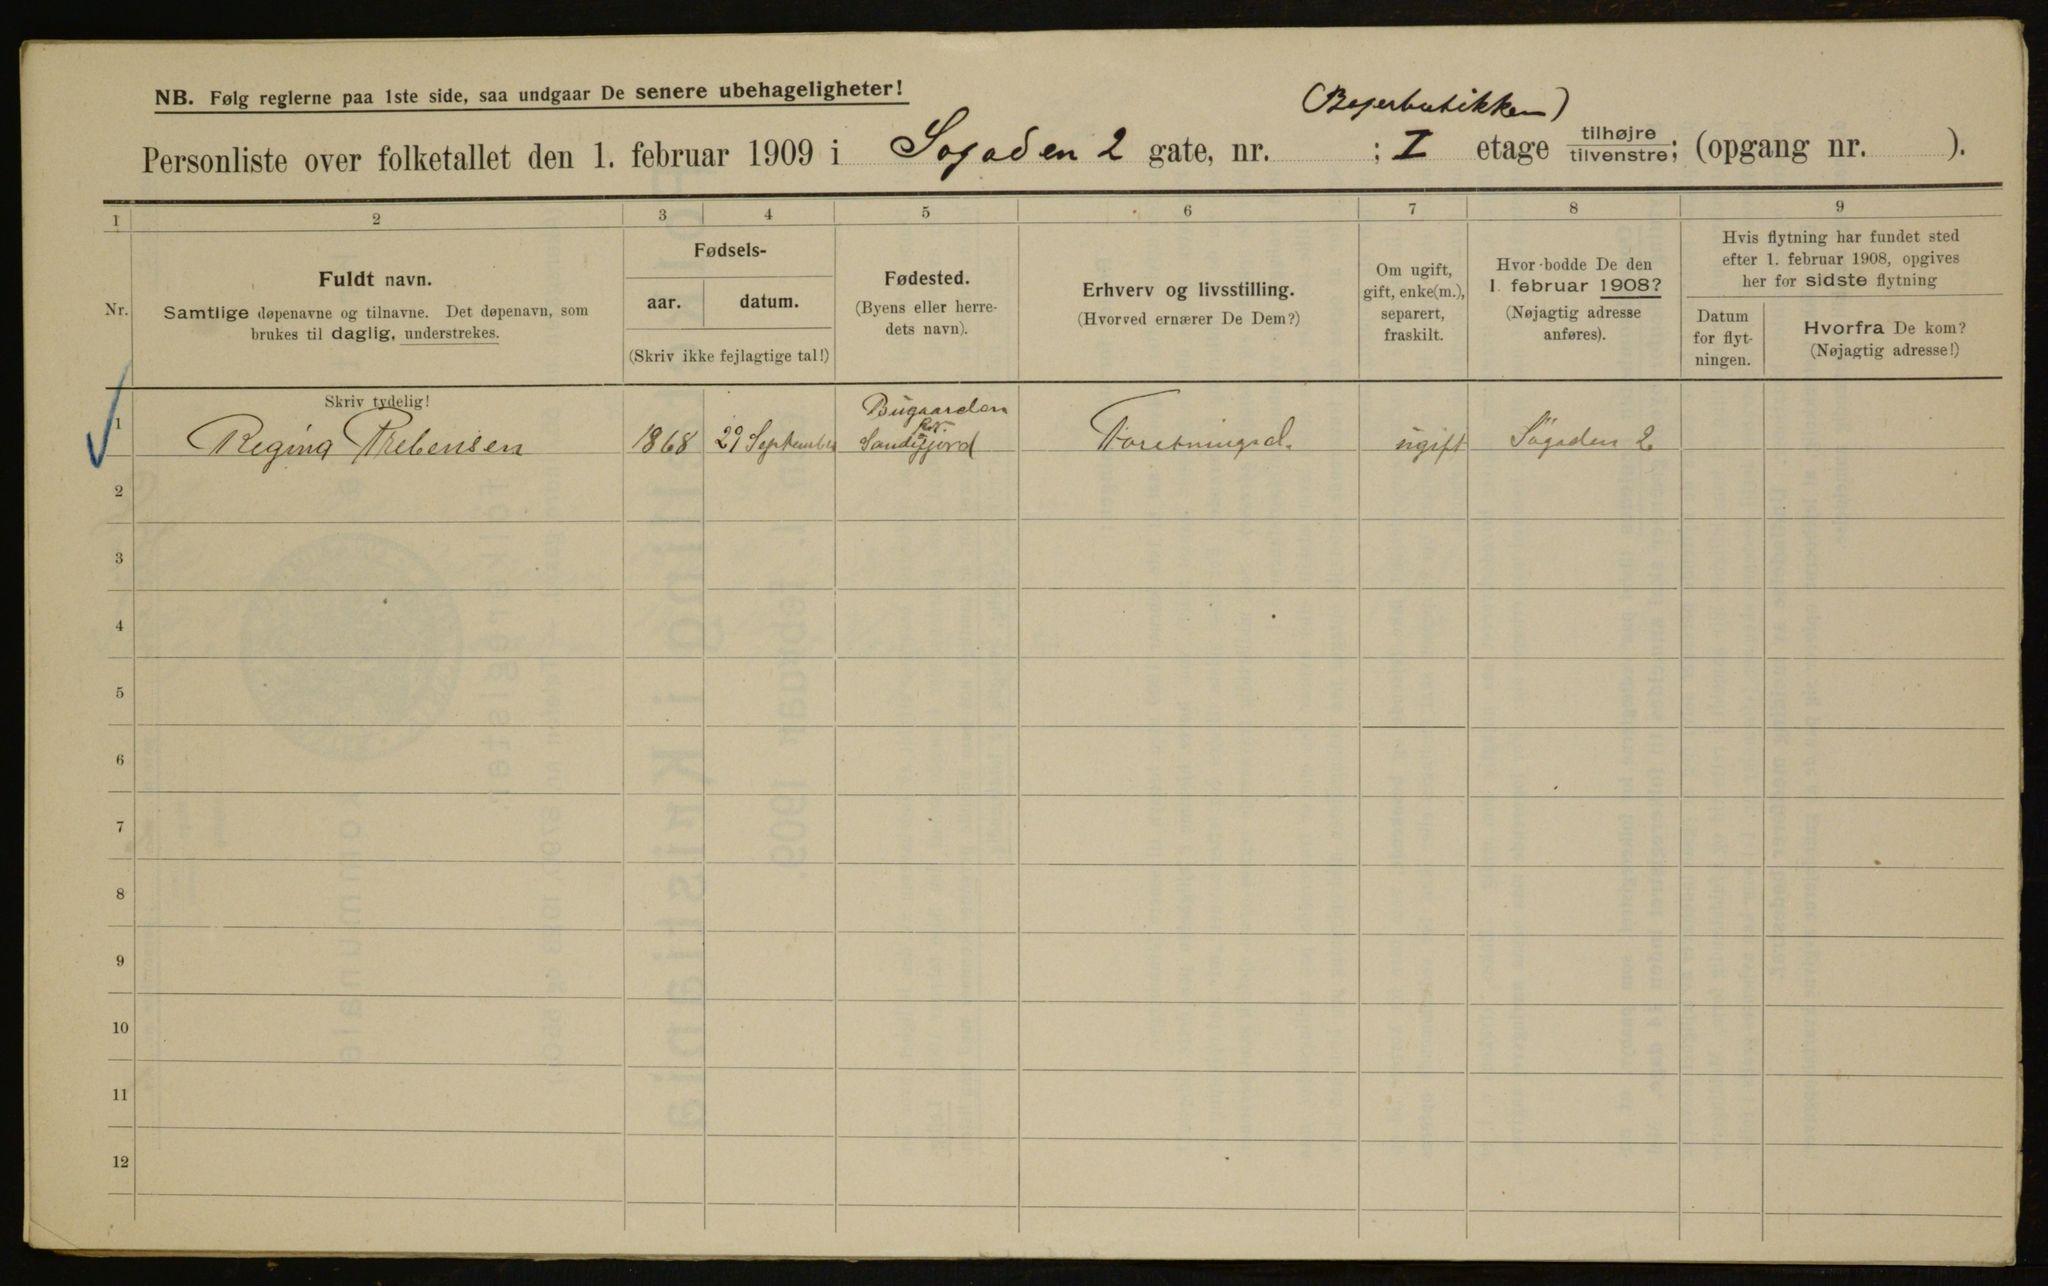 NB. Følg reglerne paa 1ste side, saa undgaar De senere ubehageligheter!
(Bajerbutikken)
Personliste over folketallet den 1. februar 1909 i Sogaden 2 gate, nr. : I etage tilhøjre tilvenstre; (opgang nr. ).
1 2 3 4 5 6 7 8 9
Nr.
Fuldt navn.
Samtlige døpenavne og tilnavne. Det døpenavn, som
brukes til daglig, understrekes.
Fødsels-
aar. datum.
(Skriv ikke fejlagtige tal!)
Fødested.
(Byens eller herre-
dets navn).
Erhverv og livsstilling.
(Hvorved ernærer De Dem?)
Om ugift,
gift, enke(m.),
separert,
fraskilt.
Hvor bodde De den
1. februar 1908?
(Nøjagtig adresse
anføres).
Hvis flytning har fundet sted
efter 1. februar 1908, opgives
her for sidste flytning
Datum
for flyt-
ningen.
Hvorfra De kom?
(Nøjagtig adresse!)
Skriv tydelig!
Bugaarden
1 Regina Prebensen 1868 29 September Sandefjord Foretningsd. ugift Søgaden 2
2
3
4
5
6
7
8
9
10
11
12